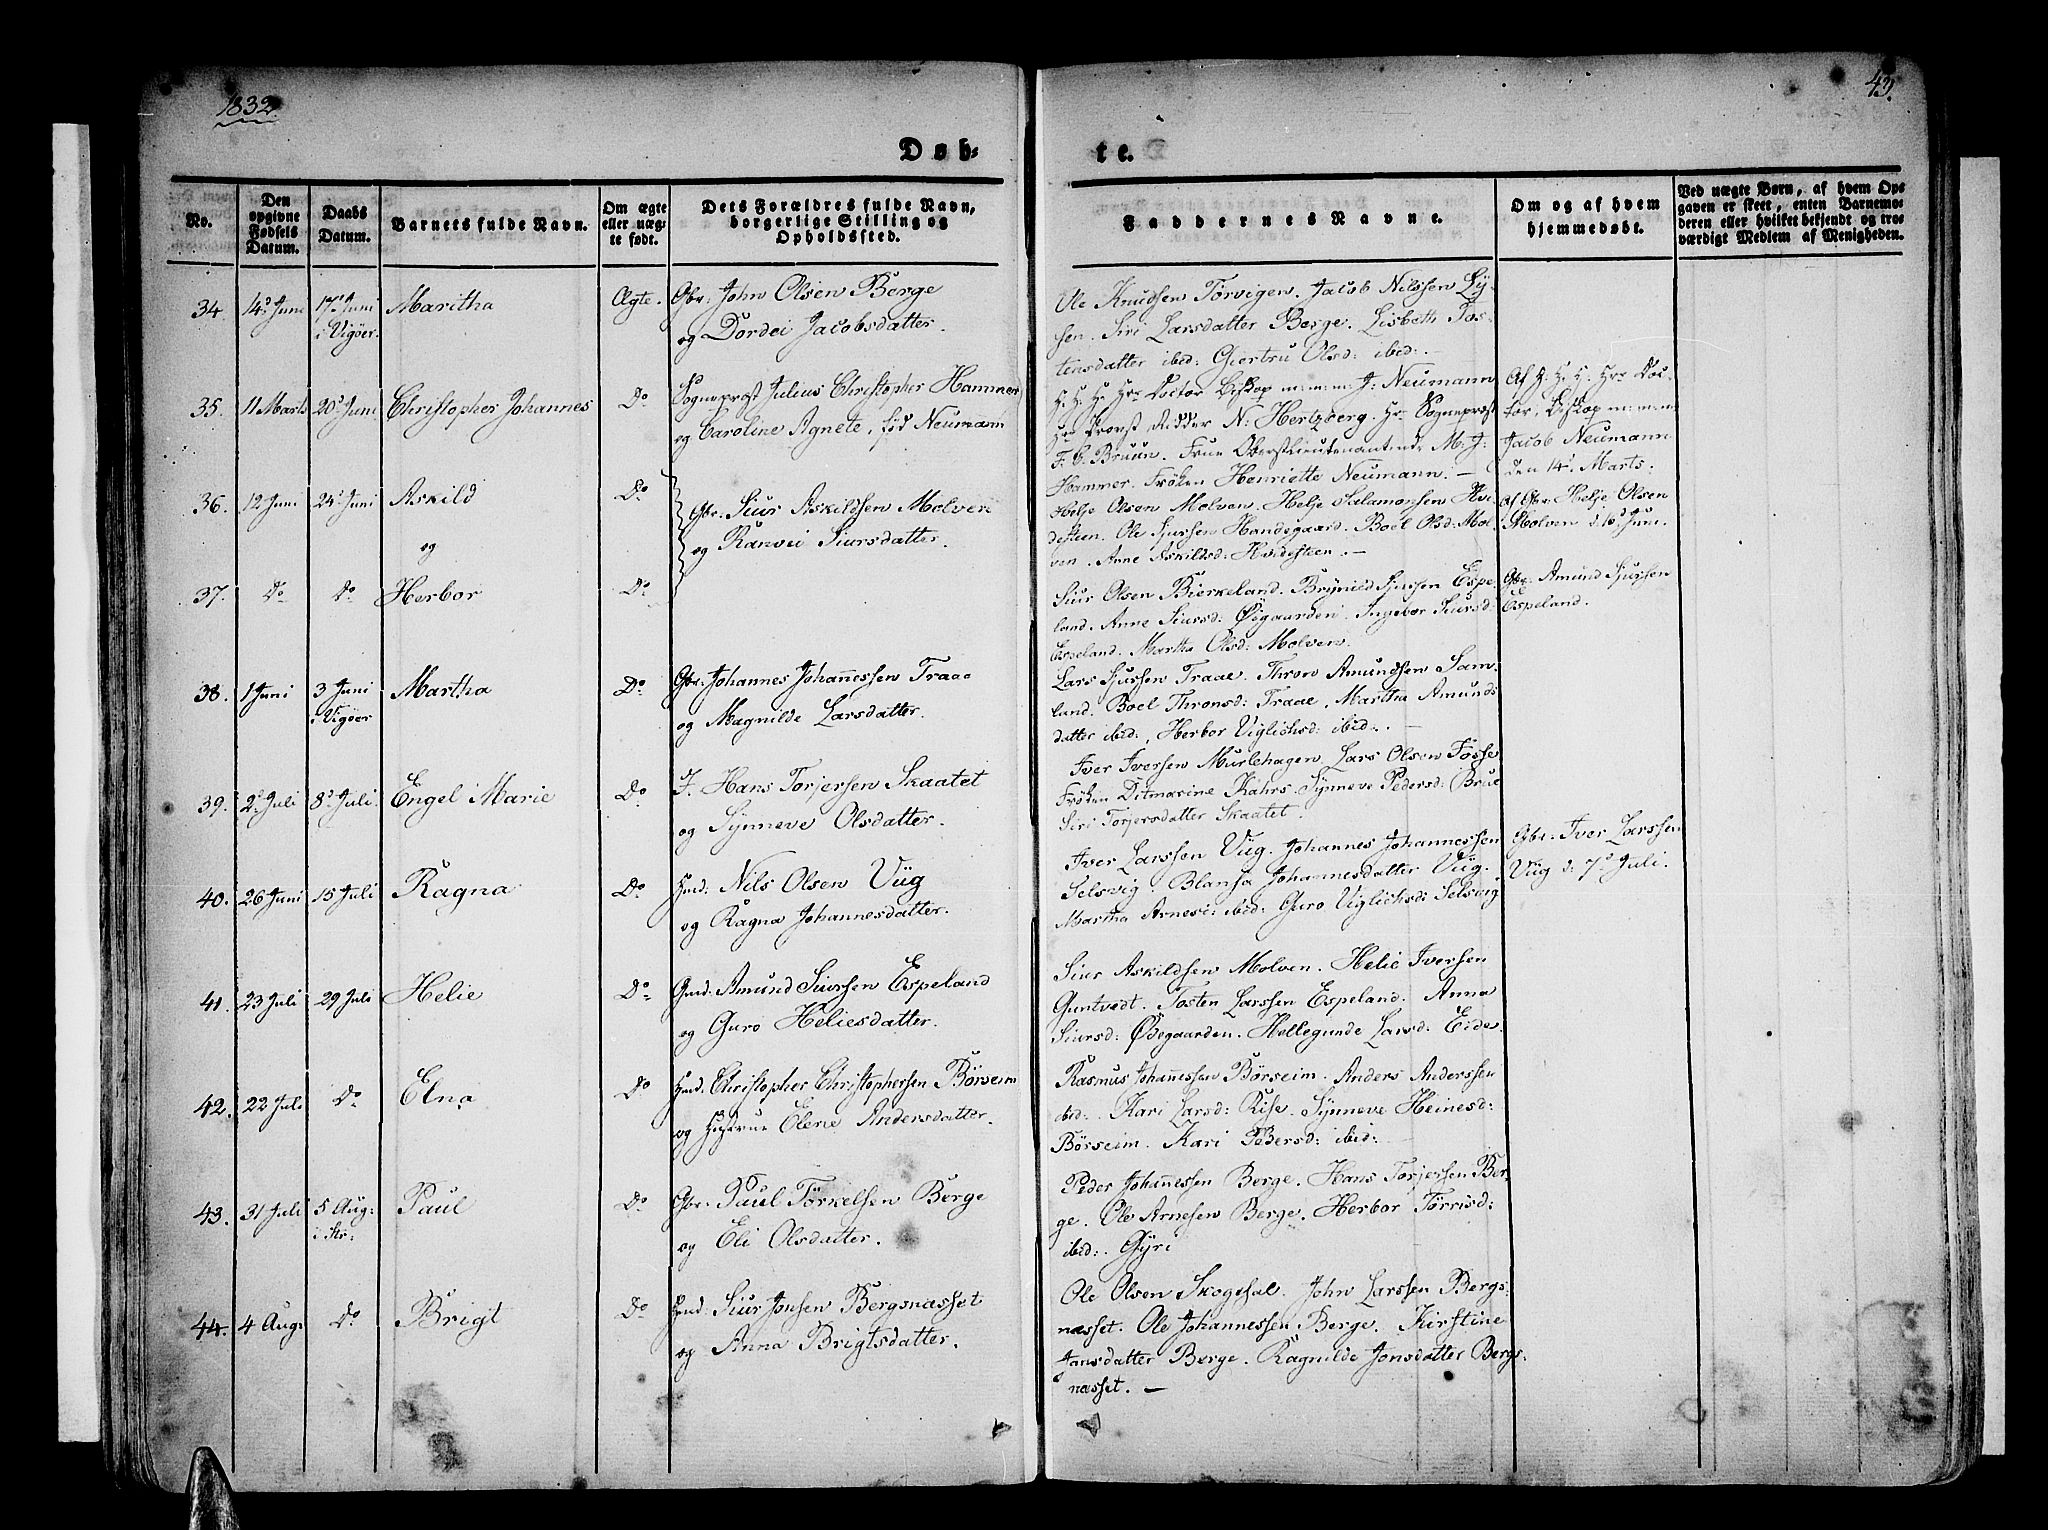 1832.
43.
Døb-
te.
No.
Den opgivne Fødsels Datum.
Daabs Datum.
Barnets fulde Navn.
Om ægte eller uægte født.
Dets Forældres fulde Navn, borgerlige Stilling og Opholdssted.
Faddernes Navne.
Om og af hvem hjemmedøbt.
Ved uægte Børn, af hvem Opgaven er skeet, enten Barnemoderen eller hvilket bekjendt og troværdigt Medlem af Menigheden.
34. 14d Juni 17d Juni Maritha Ægte. Gbr: John Olsen Berge
i Vigøer.
og Dordei Jacobsdatter.
Ole Knudsen Törvigen. Jacob Nilssen Ly-
sen. Siri Larsdatter Berge. Lisbeth Tos-
tensdatter ibid: Giertru Olsd: ibid:.
35. 11 Marts 20d Juni Christopher Johannes Do Sogneprest Julius Christopher Hammer
og Caroline Agnete, född Neumann
H. H. H. Hr: Doctor Biskop m: m: m: J: Neumann
Hr: Provst Ridder N: Hertzberg. Hr: Sogneprest
F. C. Bruun. Frue Oberstlieutenantinde M: J:
Hammer. Frøken Henriette Neumann. —
Af H. H. H. Hr: Doc-
tor, Biskop m: m: m:
Jacob Neumann
den 14d Marts.
36. 12 Juni 24d Juni Askild Do
Gbr: Siur Askildsen Molven
og
og Ranvei Siursdatter.
Helje Olsen Molven. Helje Salamonsen Hvi-
desteen. Ole Sjursen Handegaard. Boel Olsd: Mol-
ven. Anne Askildsd: Hvidesteen. —
Af Gbr: Helje Olsen
Molven d: 16d Juni.
37. Do Do Herbor Do
Siur Olsen Bierkeland. Brynild Sjursen Espe-
land. Anne Siursd: Øigaarden. Ingebor Siursd:
Espeland. Martha Olsd: Molven.
Gbr: Amund Sjursen
Espeland.
38. 1 Juni 3 Juni Martha Do Gbr: Johannes Johanessen Traae
i Vigøer
og Magnilde Larsdatter.
Lars Sjursen Traae. Thron Amundsen Sam-
land. Boel Thronsd: Traae. Martha Amunds
datter ibid:, Herbor Viglichsd: ibid:. —
39. 2d Juli 8d Juli Engel Marie Do J. Hans Torjersen Skaatet
og Synneve Olsdatter.
Iver Iversen Murlehagen. Lars Olsen Fosse
Frøken Ditmarine Kahrs. Synneve Pedersd: Brue
Siri Torjersdatter Skaatet.
40. 26 Juni 15 Juli Ragna Do Hmd: Nils Olsen Vüg
og Ragna Johannesdatter.
Iver Larssen Vüg. Johannes Johannessen
Selsvig. Blansa Johannesdatter Vüg.
Martha Arnesd: ibid: Guro Viglichsd: Selsvig
Gbr: Iver Larssen
Vug d: 7d Juli.
41. 23 Juli 29 Juli Helie Do Gmd: Amund Siursen Espeland
og Guro Heliesdatter.
Siur Askildsen Molven. Helie Iversen
Guntvedt. Tosten Larssen Espeland. Anna
Siursd: Ødegaarden. Hellegunde Larsd: Eide.
42. 22 Juli Do Elna Do Hmd: Christopher Christophersen Börseim
og Hustrue Elene Andersdatter.
Rasmus Johanessen Börseim. Anders Anderssen
ibid:. Kari Larsd: Rise. Synneve Heinesd:
Börseim. Kari Pedersd: ibid:.
43. 31 Juli 5 Aug: Paul Do Gbr: Paul Törkelsen Berge
i Str:
og Eli Olsdatter.
Peder Johanessen Berge. Hans Torjersen Ber-
ge. Ole Arnesen Berge. Herbor Törrisd:
ibid:. Gyri
44. 4 Aug: Do Brigt Do Hmd: Siur Jonsen Bergsnæsset
og Anna Brigtsdatter.
Ole Olsen Skogesal. John Larssen Bergs-
næsset. Ole Johannessen Berge. Kirstine
Hansdatter Berge. Ragnilde Jonsdatter Bergs-
næsset. —